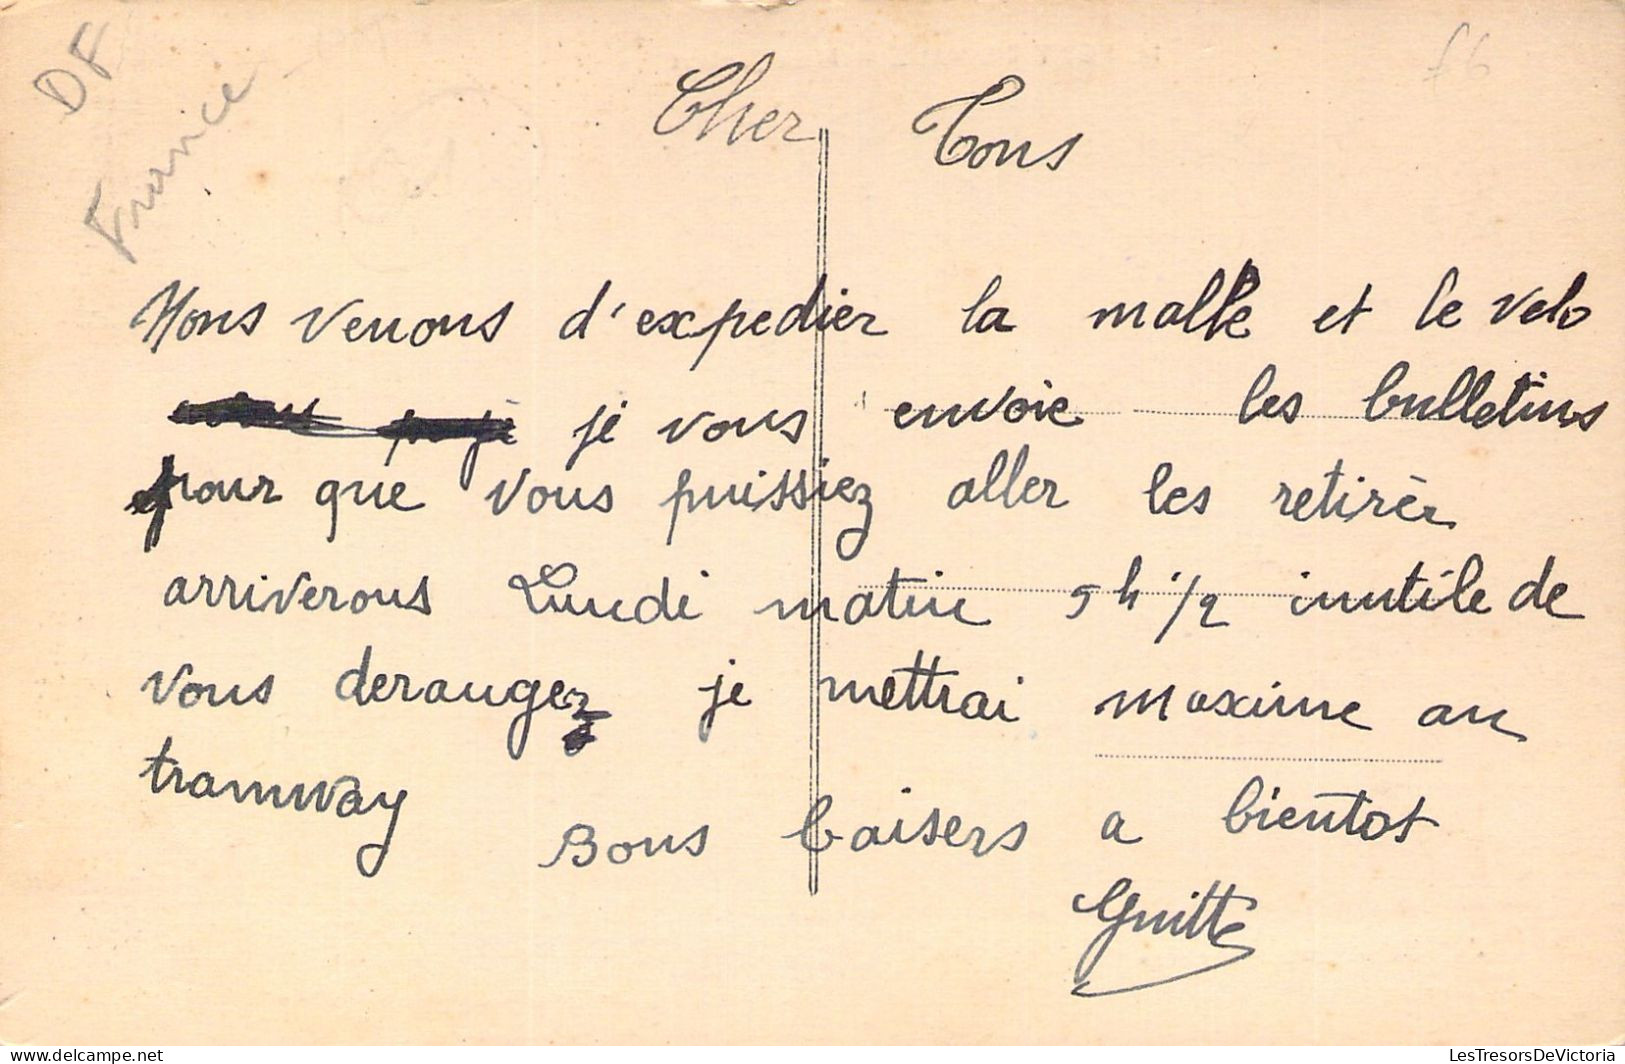 DF
France
Cher Tous
Nous venons d'expedier la malle et le velo
je vous envoie les bulletins
pour que vous puissiez aller les retirèr
arriverons Lundi matin 5 h 1/2 inutile de
vous derangez je mettrai maxime au
tramway
Bons baisers a bientot
Guitte
LesTresorsDeVictoria